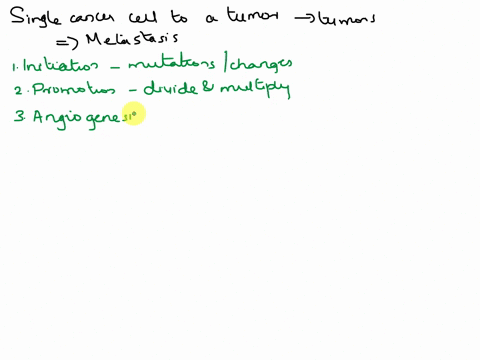 Single cancer cell to a tumor → tumors
=> Metastasis
1. Initiation - mutations / changes
2. Promotion - divide & multiply
3. Angiogenesis